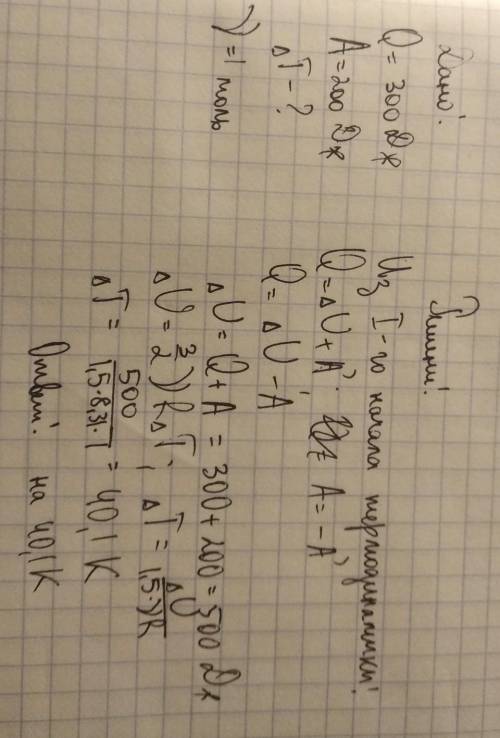 Дано:
Q = 300 Дж
A = 200 Дж
ΔT - ?
ν = 1 моль
Решение:
Из I-го начала термодинамики:
Q = ΔU + A'; A = -A'
Q = ΔU - A
ΔU = Q + A = 300 + 200 = 500 Дж
ΔU = 3/2 νRΔT; ΔT = ΔU / 1,5·νR
ΔT = 500 / 1,5·8,31·1 = 40,1 K
Ответ: на 40,1 K